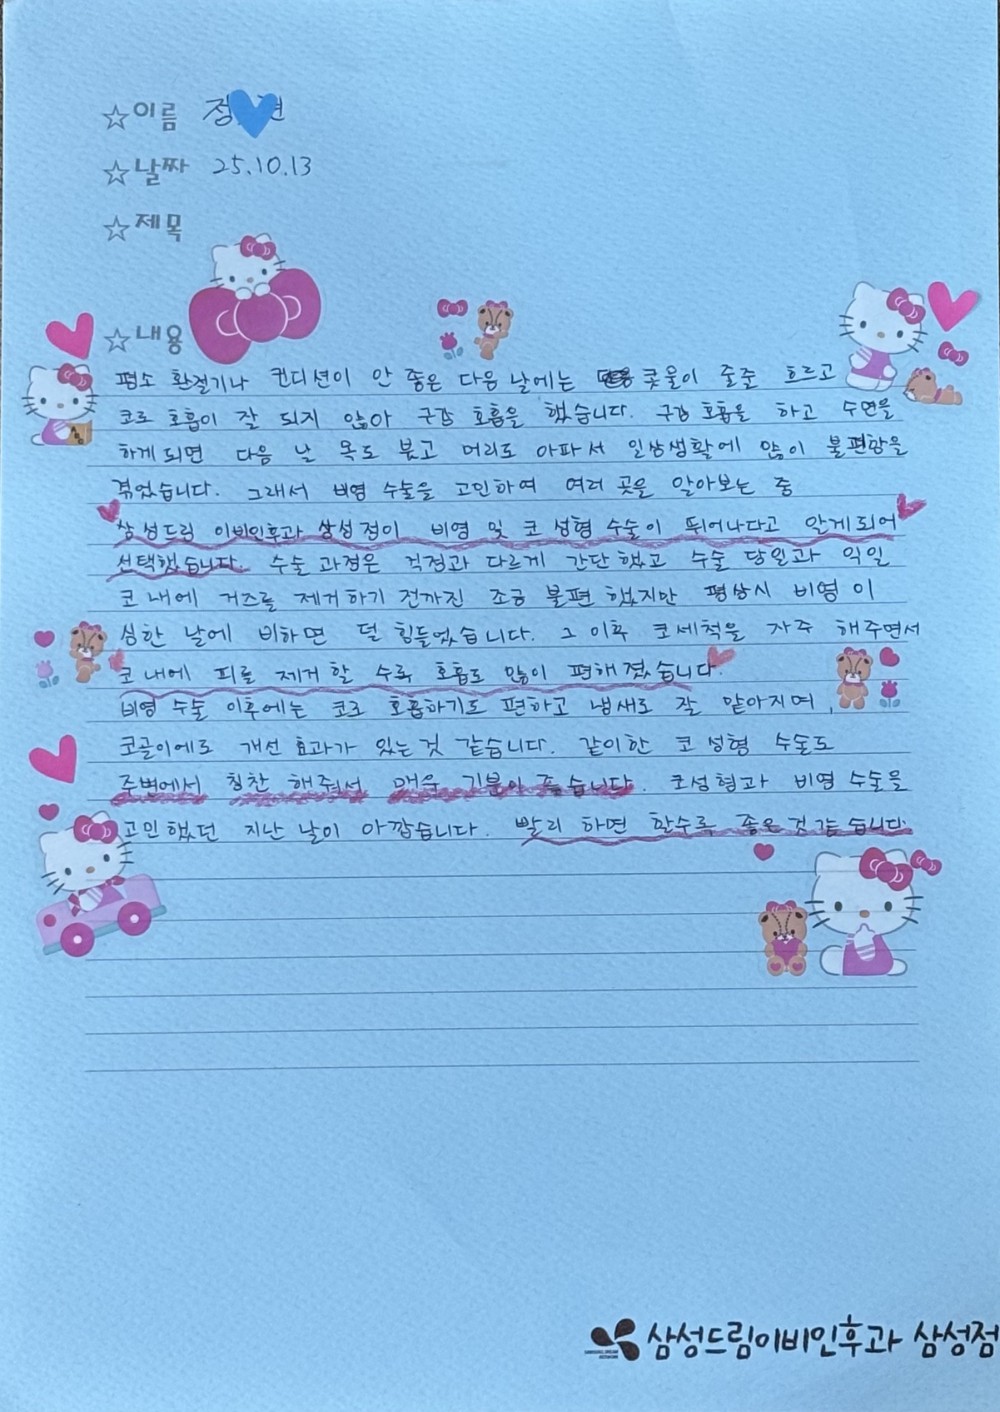 ☆이름 정 현
☆날짜 25.10.13
☆제목
☆내용
평소 환절기나 컨디션이 안 좋은 다음 날에는 콧물이 줄줄 흐르고
코로 호흡이 잘 되지 않아 구강 호흡을 했습니다. 구강 호흡을 하고 수면을
하게 되면 다음 날 목도 붓고 머리도 아파서 일상생활에 많이 불편함을
겪었습니다. 그래서 비염 수술을 고민하여 여러 곳을 알아보는 중
삼성드림 이비인후과 삼성점이 비염 및 코 성형 수술이 뛰어나다고 알게되어
선택했습니다. 수술 과정은 걱정과 다르게 간단했고 수술 당일과 익일
코 내에 거즈를 제거하기 전까진 조금 불편했지만 평상시 비염이
심한 날에 비하면 덜 힘들었습니다. 그 이후 코세척을 자주 해주면서
코 내에 피를 제거할 수록 호흡도 많이 편해졌습니다.
비염 수술 이후에는 코로 호흡하기도 편하고 냄새도 잘 맡아지며,
코골이에도 개선 효과가 있는것 같습니다. 같이한 코 성형 수술도
주변에서 칭찬 해줘서 매우 기분이 좋습니다. 코성형과 비염 수술을
고민했던 지난 날이 아깝습니다. 빨리 하면 할수록 좋은것 같습니다.
삼성드림이비인후과 삼성점